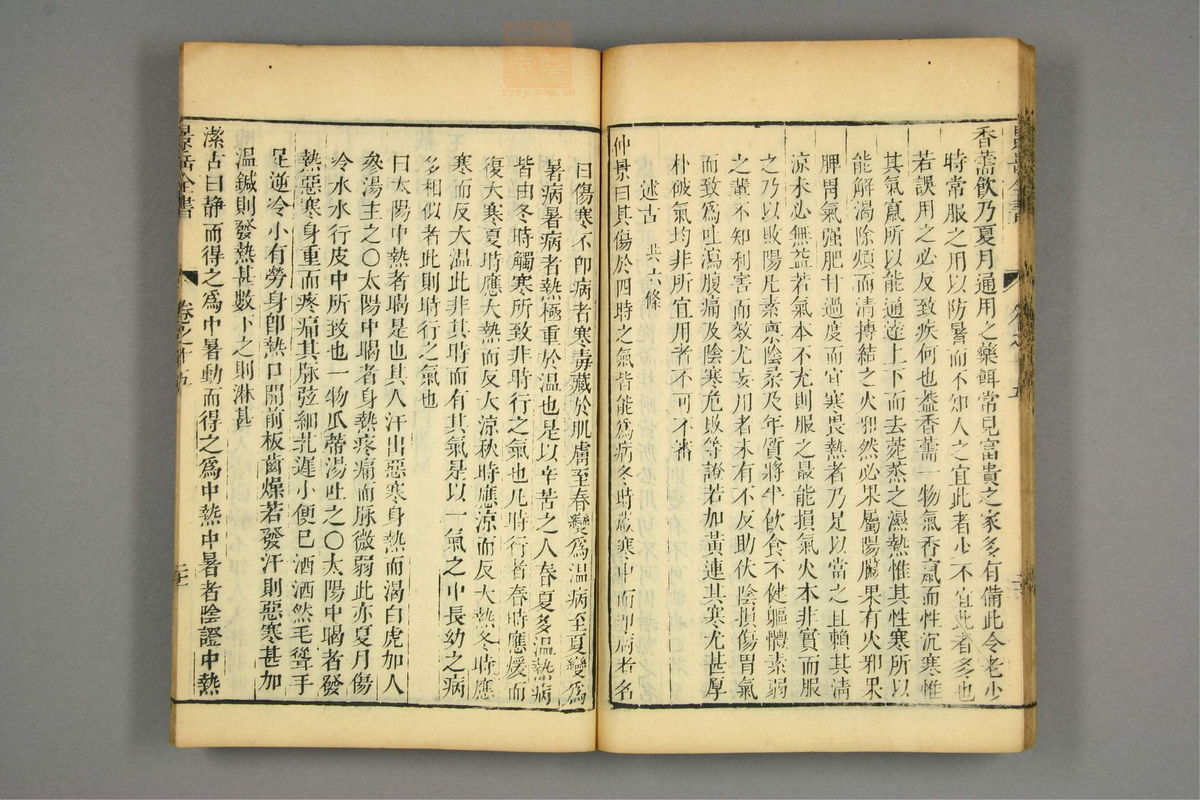 香薷飲乃夏月通用之藥餌常見富貴之家多有備此令老少
時常服之用以防暑而不知人之宜此者少不宜此者多也
若誤用之必反致疾何也蓋香薷一物氣香竄而性沉寒惟
其氣竄所以能通達上下而去菀蒸之濕熱惟其性寒所以
能解渴除煩而清搏結之火邪然必果屬陽臟果有火邪果
脾胃氣强肥甘過度而宜寒畏熱者乃足以當之且賴其清
涼未必無益若氣本不充則服之最能損氣火本非實而服
之乃以敗陽凡素禀陰柔及年質將半飲食不健軀體素弱
之輩不知利害而效尤妄用者未有不反助伏陰損傷胃氣
而致爲吐瀉腹痛及陰寒危敗等證若加黃連其寒尤甚厚
朴破氣均非所宜用者不可不審
述古 共六條
仲景曰其傷於四時之氣皆能爲病冬時嚴寒中而即病者名
曰傷寒不即病者寒毒藏於肌膚至春變爲溫病至夏變爲
暑病暑病者熱極重於溫也是以辛苦之人春夏多溫熱病
皆由冬時觸寒所致非時行之氣也凡時行者春時應煖而
復大寒夏時應大熱而反大涼秋時應涼而反大熱冬時應
寒而反大溫此非其時而有其氣是以一氣之中長幼之病
多相似者此則時行之氣也
曰太陽中熱者暍是也其人汗出惡寒身熱而渴白虎加人
參湯主之〇太陽中暍者身熱疼痛而脉微弱此亦夏月傷
冷水水行皮中所致也一物瓜蒂湯吐之〇太陽中暍者發
熱惡寒身重而疼痛其脉弦細芤遲小便已洒洒然毛聳手
足逆冷小有勞身即熱口開前板齒燥若發汗則惡寒甚加
溫鍼則發熱甚數下之則淋甚
潔古曰静而得之爲中暑動而得之爲中熱中暑者陰證中熱
景岳全書
卷之十五
zydj.com.cn